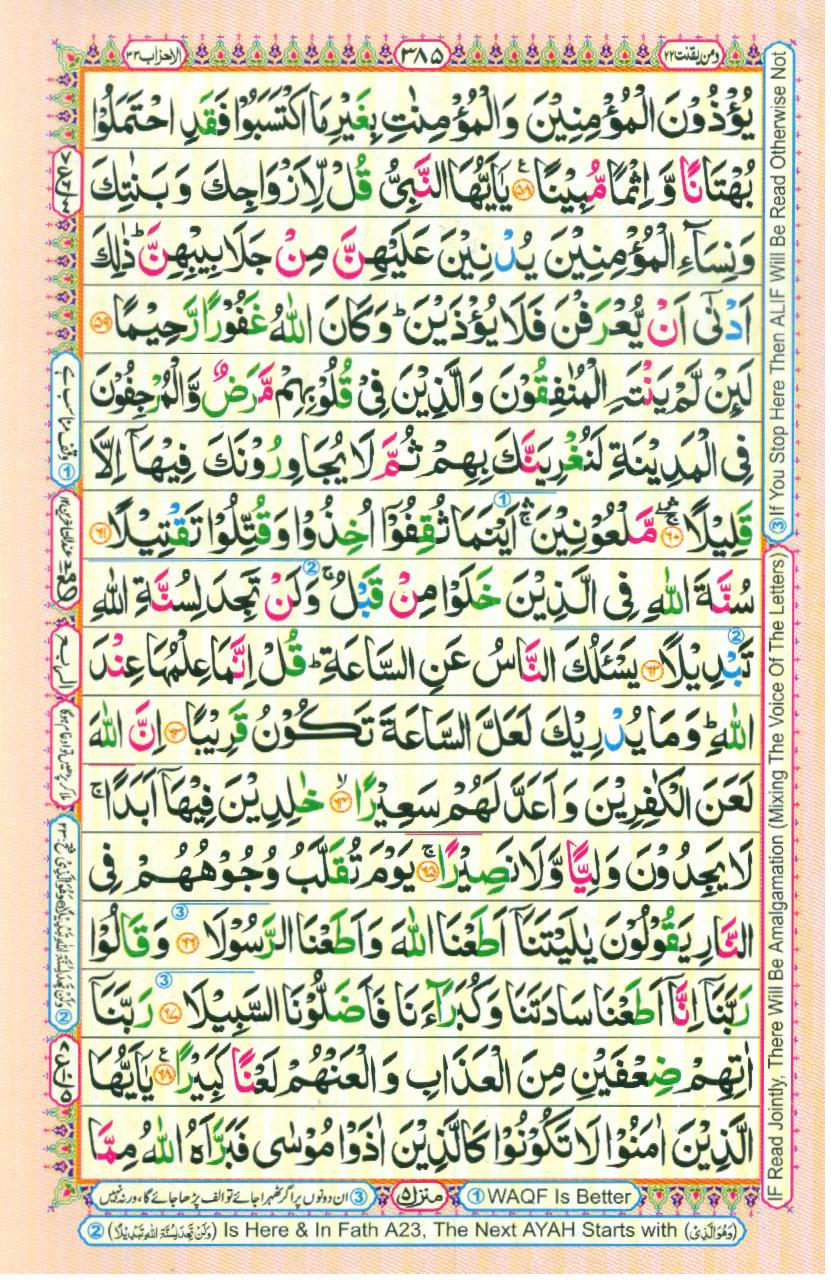 ومن یقنت ۲۲
۳۸۵
الاحزاب ۳۳
يُؤْذُوْنَ الْمُؤْمِنِيْنَ وَالْمُؤْمِنٰتِ بِغَيْرِ مَا اكْتَسَبُوْا فَقَدِ احْتَمَلُوْا
بُهْتَانًا وَّ اِثْمًا مُّبِيْنًا ۝۵۸ يٰۤاَيُّهَا النَّبِىُّ قُلْ لِّاَزْوَاجِكَ وَ بَنٰتِكَ
وَنِسَآءِ الْمُؤْمِنِيْنَ يُدْنِيْنَ عَلَيْهِنَّ مِنْ جَلَابِيْبِهِنَّ ؕ ذٰلِكَ
اَدْنٰۤى اَنْ يُّعْرَفْنَ فَلَا يُؤْذَيْنَ ؕ وَكَانَ اللّٰهُ غَفُوْرًا رَّحِيْمًا ۝۵۹
لَئِنْ لَّمْ يَنْتَهِ الْمُنٰفِقُوْنَ وَالَّذِيْنَ فِىْ قُلُوْبِهِمْ مَّرَضٌ وَّالْمُرْجِفُوْنَ
فِى الْمَدِيْنَةِ لَنُغْرِيَنَّكَ بِهِمْ ثُمَّ لَا يُجَاوِرُوْنَكَ فِيْهَاۤ اِلَّا
قَلِيْلًا ۝۶۰ مَّلْعُوْنِيْنَ ۛۚ اَيْنَمَا ثُقِفُوْۤا اُخِذُوْا وَقُتِّلُوْا تَقْتِيْلًا ۝۶۱
سُنَّةَ اللّٰهِ فِى الَّذِيْنَ خَلَوْا مِنْ قَبْلُ ۚ وَلَنْ تَجِدَ لِسُنَّةِ اللّٰهِ
تَبْدِيْلًا ۝۶۲ يَسْـَٔلُكَ النَّاسُ عَنِ السَّاعَةِ ؕ قُلْ اِنَّمَا عِلْمُهَا عِنْدَ
اللّٰهِ ؕ وَمَا يُدْرِيْكَ لَعَلَّ السَّاعَةَ تَكُوْنُ قَرِيْبًا ۝۶۳ اِنَّ اللّٰهَ
لَعَنَ الْكٰفِرِيْنَ وَاَعَدَّ لَهُمْ سَعِيْرًا ۝۶۴ خٰلِدِيْنَ فِيْهَاۤ اَبَدًا ۚ
لَا يَجِدُوْنَ وَلِيًّا وَّلَا نَصِيْرًا ۝۶۵ يَوْمَ تُقَلَّبُ وُجُوْهُهُمْ فِى
النَّارِ يَقُوْلُوْنَ يٰلَيْتَنَاۤ اَطَعْنَا اللّٰهَ وَاَطَعْنَا الرَّسُوْلَا ۝۶۶ وَقَالُوْا
رَبَّنَاۤ اِنَّاۤ اَطَعْنَا سَادَتَنَا وَكُبَرَآءَنَا فَاَضَلُّوْنَا السَّبِيْلَا ۝۶۷ رَبَّنَاۤ
اٰتِهِمْ ضِعْفَيْنِ مِنَ الْعَذَابِ وَالْعَنْهُمْ لَعْنًا كَبِيْرًا ۝۶۸ يٰۤاَيُّهَا
الَّذِيْنَ اٰمَنُوْا لَا تَكُوْنُوْا كَالَّذِيْنَ اٰذَوْا مُوْسٰى فَبَرَّاَهُ اللّٰهُ مِمَّا
③If You Stop Here Then ALIF Will Be Read Otherwise Not
IF Read Jointly, There Will Be Amalgamation (Mixing The Voice Of The Letters)
① وقف مناسب ہے
① WAQF Is Better
منزل ۵
③ ان دونوں پر اگر ٹھہرا جائے تو الف پڑھا جائے گا، ورنہ نہیں
② (وَلَنْ تَجِدَ لِسُنَّةِ اللّٰهِ تَبْدِيْلًا) Is Here & In Fath A23, The Next AYAH Starts with (وَهُوَ الَّذِىْ)